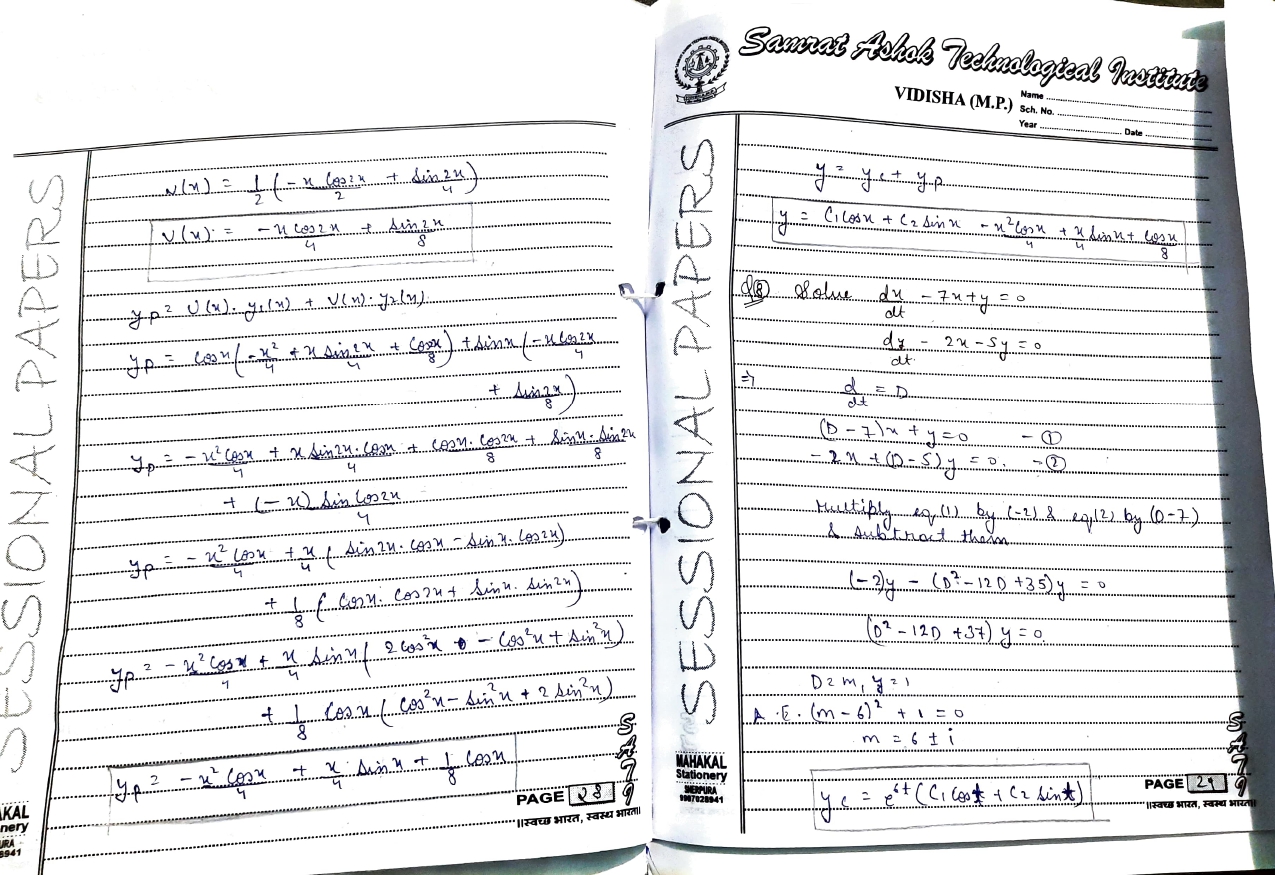 SESSIONAL PAPERS
v(x) = 1/2 (-x cos2x/2 + sin2x/4)
V(x) = -x cos2x/4 + sin2x/8
yp = U(x). y1(x) + V(x). y2(x)
yp = cosx (-x²/4 + x sin2x/4 + cosx/8) + sinx (-x cos2x/4
+ sin2x/8)
yp = -x² cosx/4 + x sin2x. cosx/4 + cosx. cos2x/8 + sinx. sin2x/8
+ (-x) sin cos2x/4
yp = -x² cosx/4 + x/4 ( sin2x. cosx - sinx. cos2x)
+ 1/8 ( cosx. cos2x + sinx. sin2x)
yp = -x² cosx/4 + x/4 sinx ( 2cos²x - cos²x + sin²x)
+ 1/8 cosx ( cos²x - sin²x + 2 sin²x)
yp = -x² cosx/4 + x/4 sinx + 1/8 cosx
PAGE 28
SATI
॥स्वच्छ भारत, स्वस्थ भारत॥
AKAL
nery
URA
8941
Samrat Ashok Technological Institute
VIDISHA (M.P.)
Name
Sch. No.
Year Date
SESSIONAL PAPERS
y = yc + yp
y = C1 cosx + C2 sinx - x² cosx/4 + x/4 sinx + cosx/8
Q8 Solve dx/dt - 7x + y = 0
dy/dt - 2x - 5y = 0
=> d/dt = D
(D - 7)x + y = 0 - ①
- 2x + (D - 5) y = 0. - ②
Multiply eq (1) by (-2) & eq (2) by (D-7)
& subtract them
(-2)y - (D² - 12D + 35)y = 0
(D² - 12D + 37) y = 0
D = m, y = 1
A.E. (m - 6)² + 1 = 0
m = 6 ± i
yc = e^6t (C1 cost + C2 sint)
MAHAKAL
Stationery
SHERPURA
9907028941
SATI
PAGE 29
॥स्वच्छ भारत, स्वस्थ भारत॥